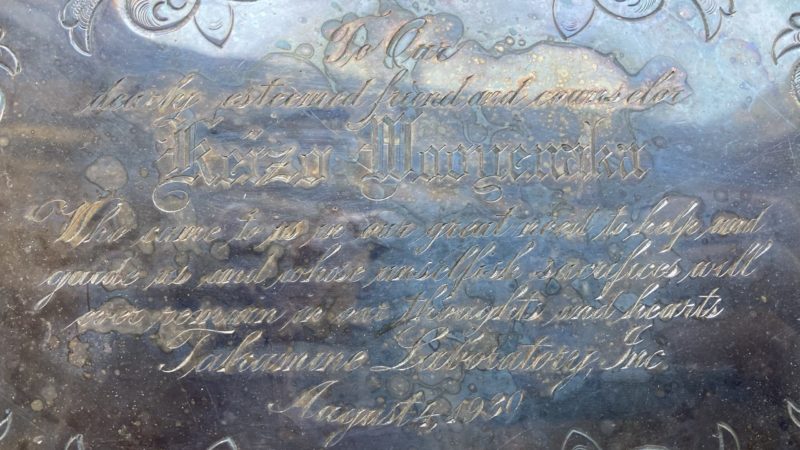 To Our
dearly esteemed friend and counselor
Keizo Wooyenaka
Who came to us in our great need to help and
guide us and whose unselfish sacrifices will
ever remain in our thoughts and hearts
Takamine Laboratory, Inc.
August 4, 1930